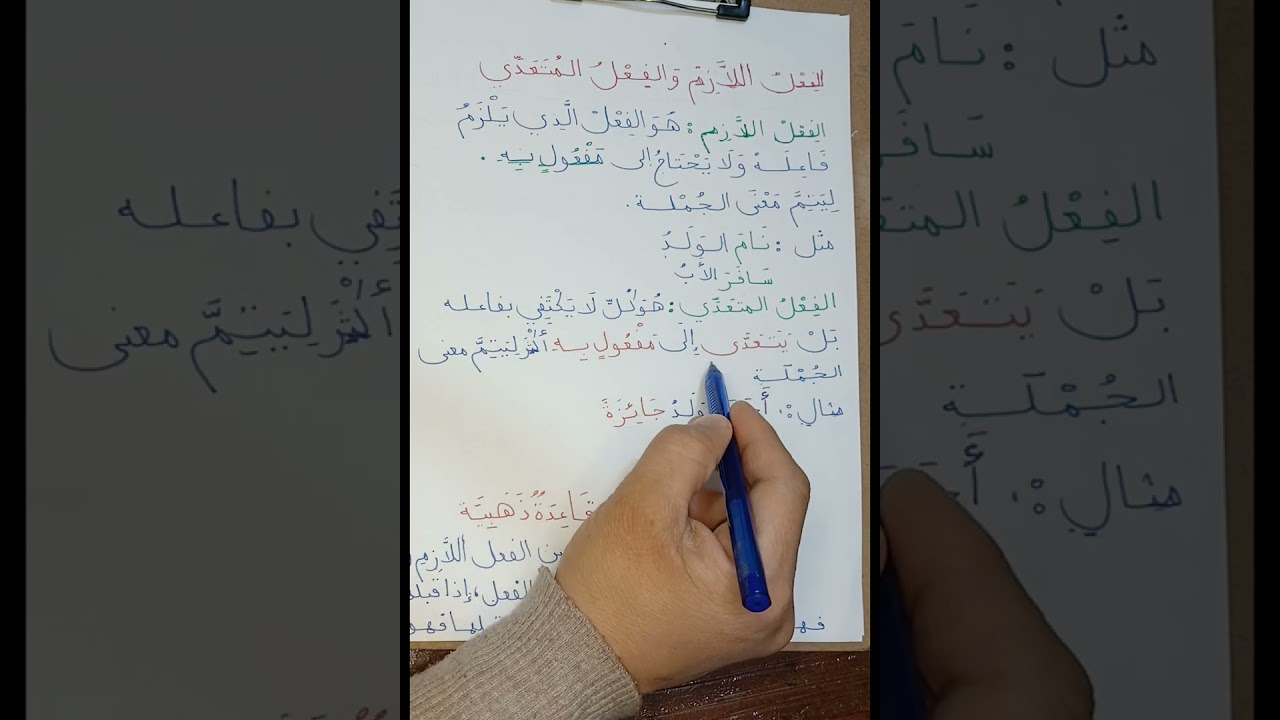 الفِعْلُ اللاَّزِمْ وَالفِعْلُ المُتَعَدِّي
الفِعْلُ اللاَّزِم : هُوَ الفِعْلُ الَّذِي يَلْزَمُ
فَاعِلَهْ وَلَا يَحْتَاجُ إلى مَفْعُولٍ بِهِ .
لِيَتِمَّ مَعْنَى الجُمْلَة .
مثل : نَامَ الوَلَدُ
سَافَرَ الأَبُ
الفِعْلُ المتعَدِّي : هُوَ لَا يَكْتَفِي بفاعله
بَلْ يَتَعَدَّى إِلَى مَفْعُولٍ بِهِ أَوْ أكْثَرْ لِيَتِمَّ معنى
الجُمْلَةِ
مثال : وَلَدُ جَائِزَةً
قَاعِدَةٌ ذَهَبِيَّة
الفعل اللاَّزِمِ
الفعل، إذا قبلها
فهو